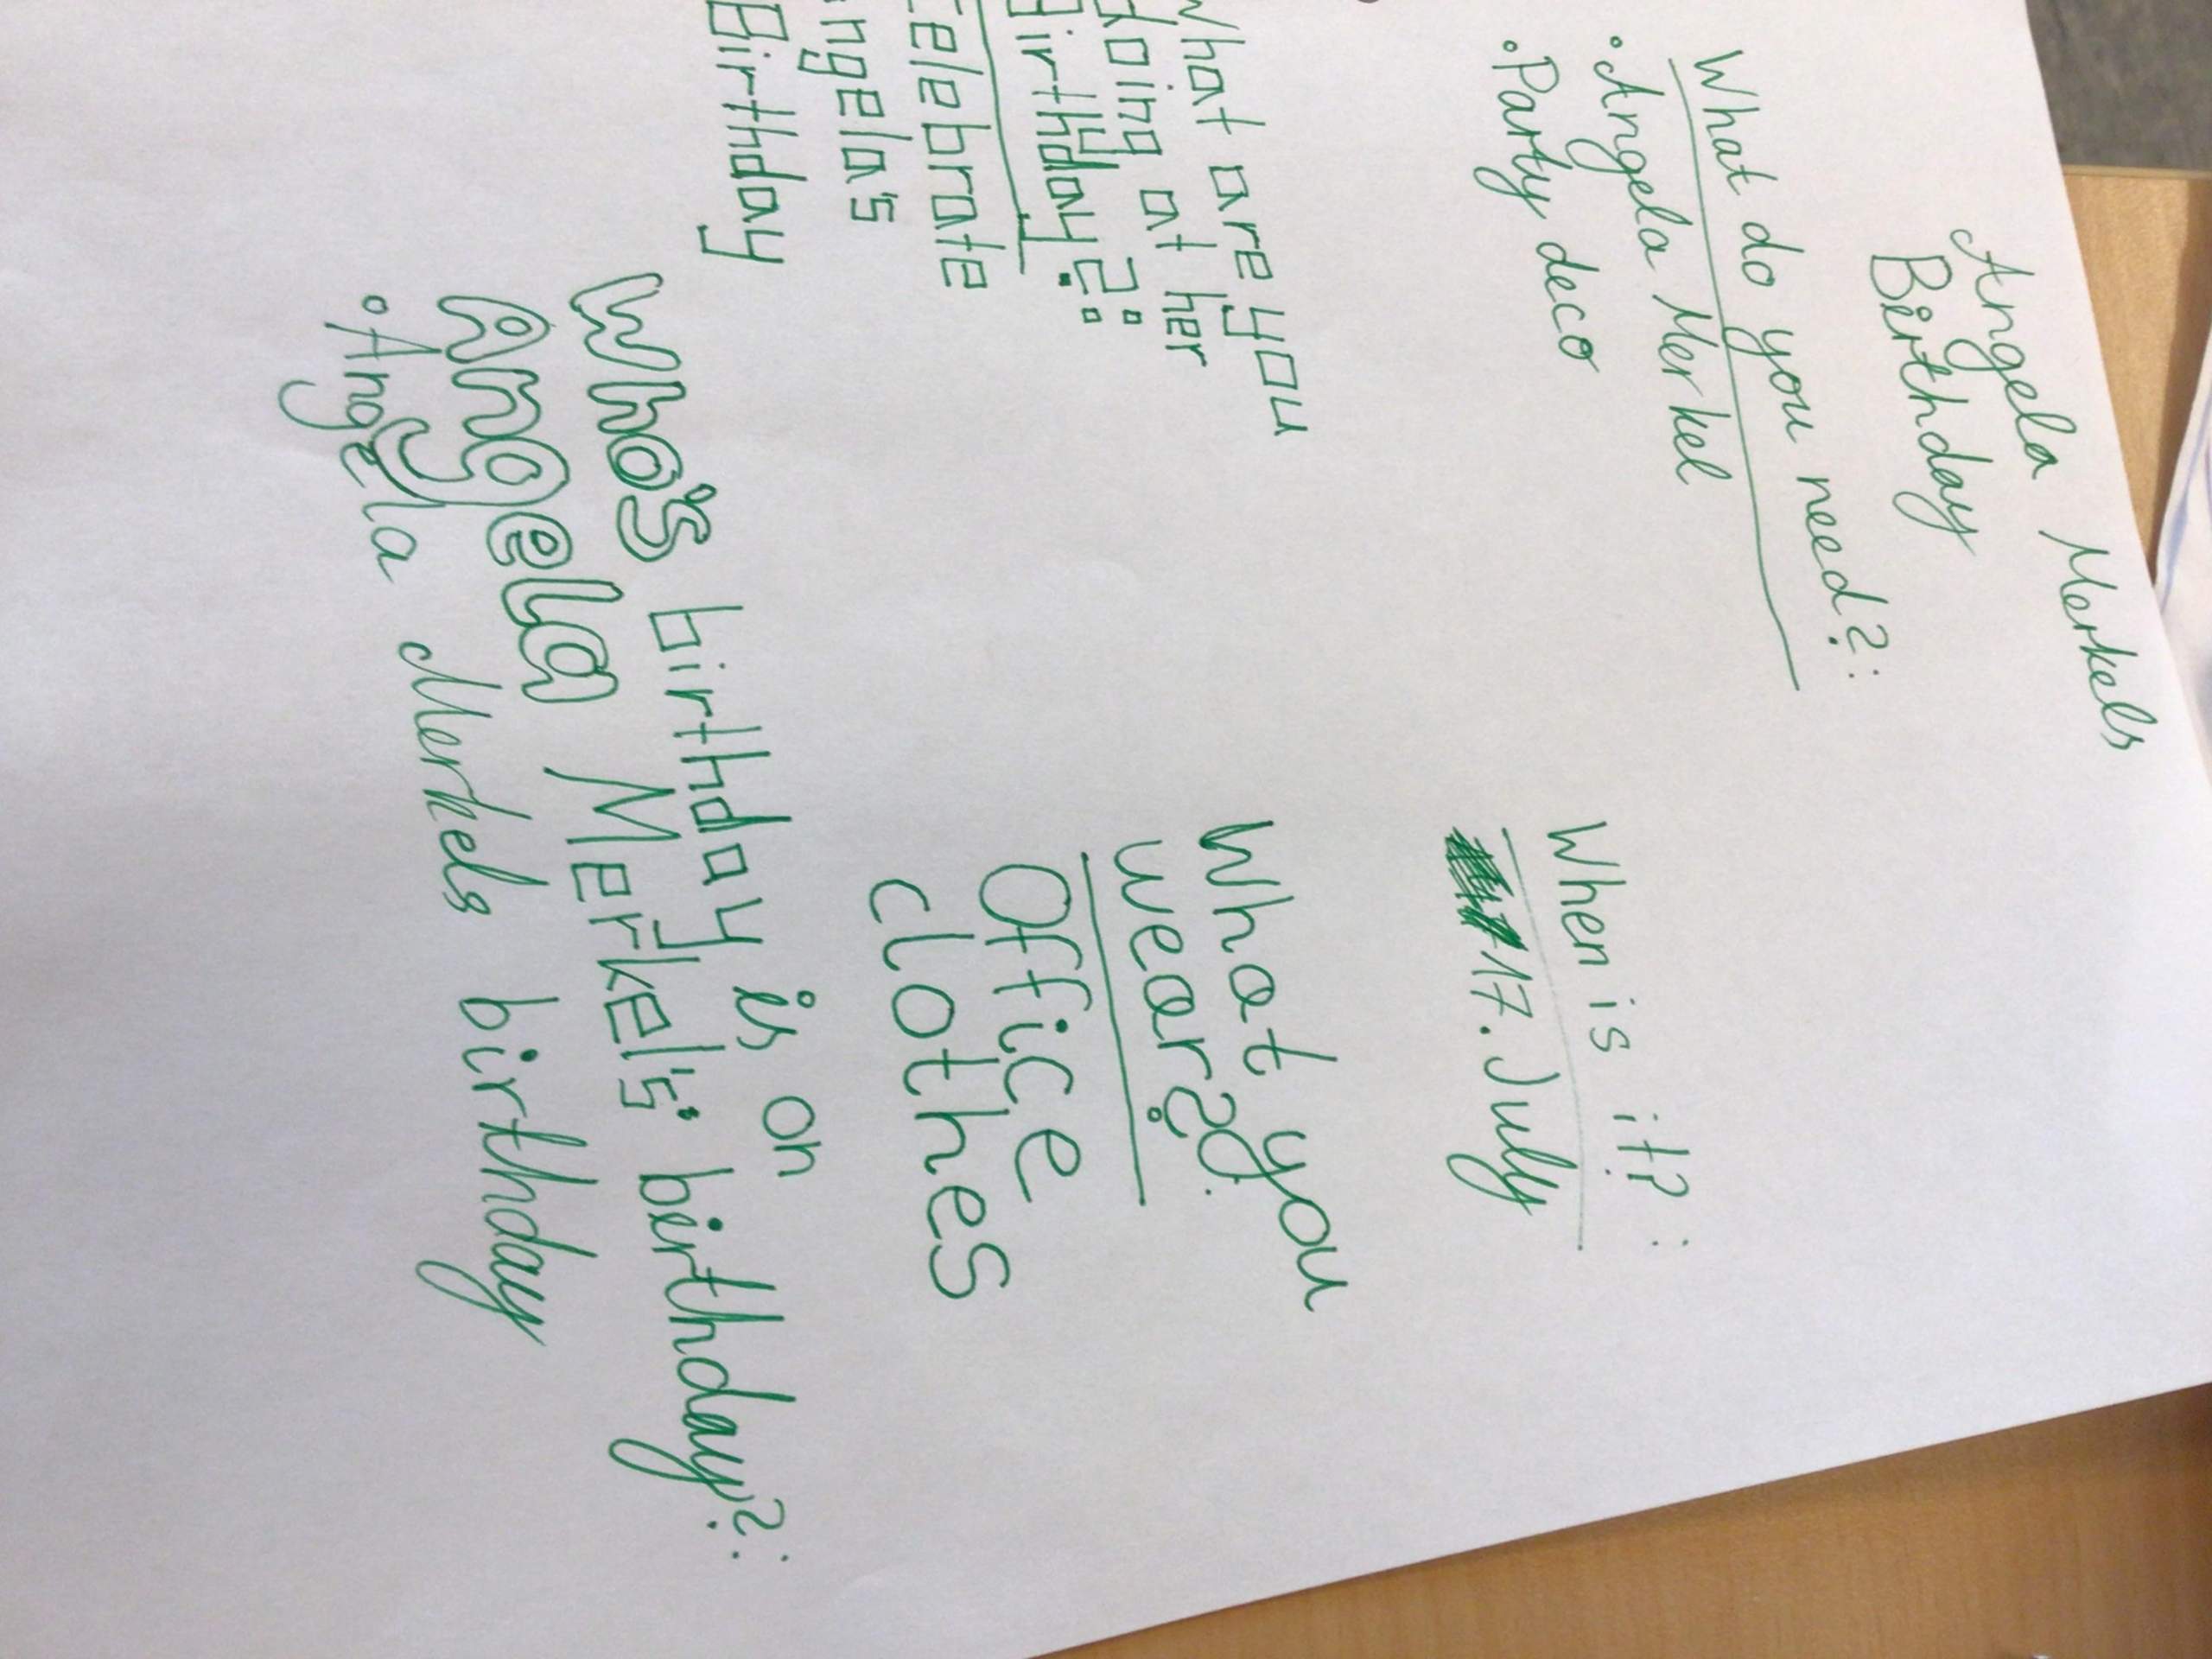 Angela Merkels
Birthday
What do you need?:
• Angela Merkel
• Party deco
When is it? :
17. July
What are you
doing at her
Birthday?:
Celebrate
Angela's
Birthday
What you
wear?
Office
clothes
Who's birthday is on
Angela Merkel's birthday?:
• Angela Merkels birthday